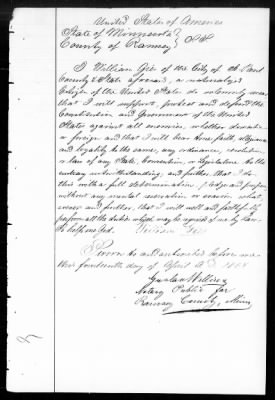 United States of America
State of Minnesota }
County of Ramsey } SS
I William Gies of the City of St Paul
County & State aforesaid, a naturalized
Citizen of the United States do solemnly swear
that I will support, protect and defend the
Constitution and Government of the United
States against all enemies, whether domestic
or foreign and that I will bear true faith, allegiance
and loyalty to the same, any ordinance, resolution
or law of any State, Convention, or Legislature to the
contrary notwithstanding; and further, that I do
this with a full determination, pledge and purpose
without any mental reservation or evasion what-
soever and further, that I will well and faithfully
perform all the duties which may be required of me by law.
So help me God. William Gies
Sworn to and subscribed before me
this fourteenth day of April A.D. 
Gustav Willius
Notary Public for
Ramsey County, Minn